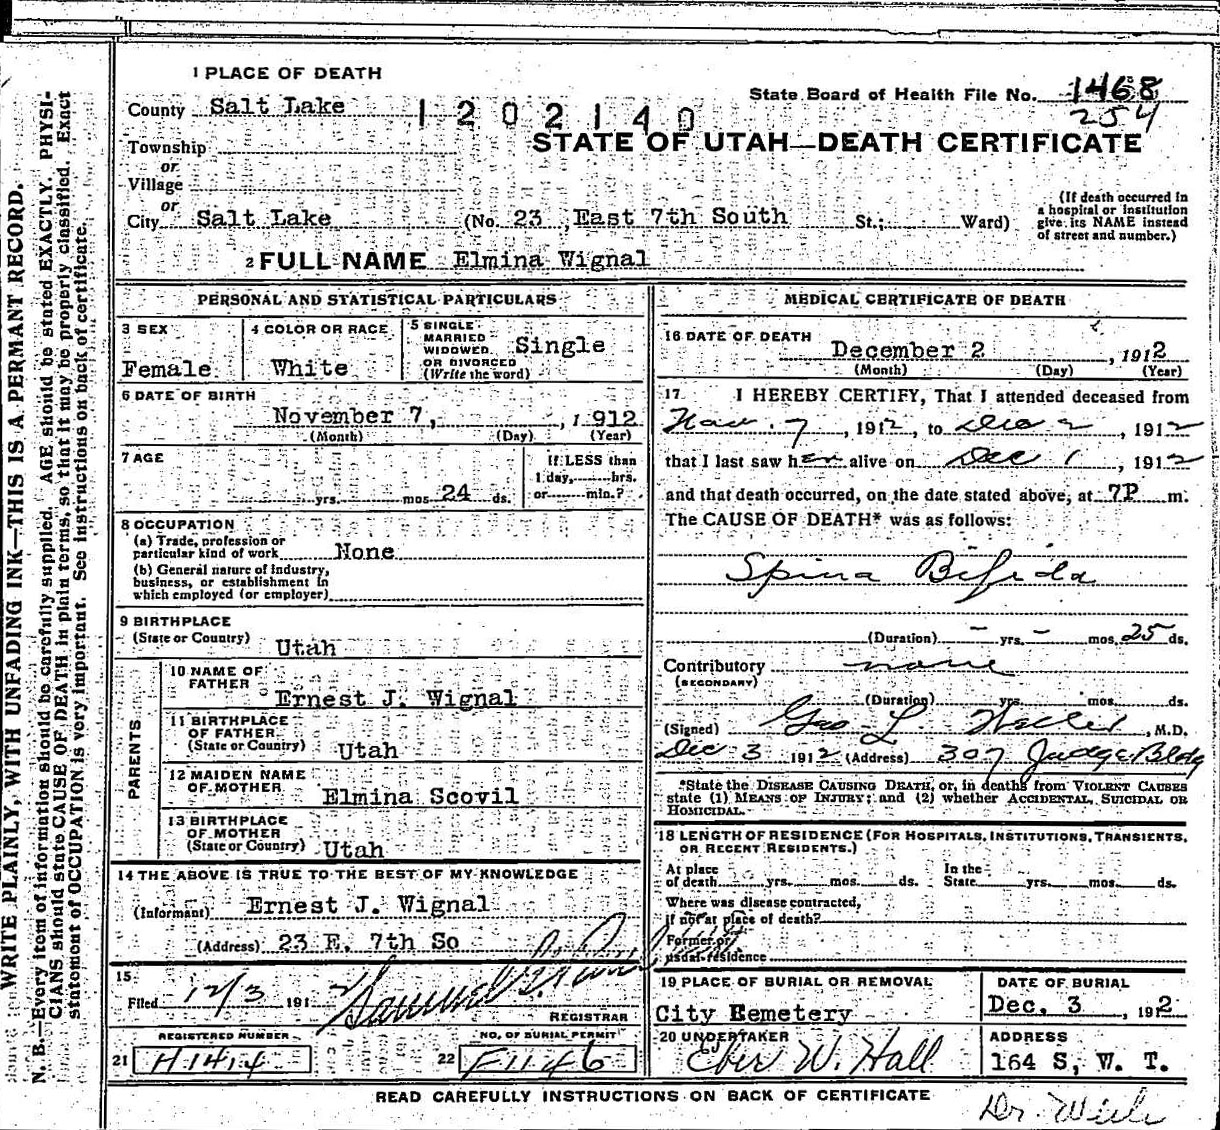 1 PLACE OF DEATH
County Salt Lake
1202140
State Board of Health File No. 1468
254
STATE OF UTAH—DEATH CERTIFICATE
Township
or
Village
or
City Salt Lake (No. 23, East 7th South St.; Ward)
(If death occurred in a hospital or institution give its NAME instead of street and number.)
2 FULL NAME Elmina Wignal
PERSONAL AND STATISTICAL PARTICULARS
3 SEX
Female
4 COLOR OR RACE
White
5 SINGLE
MARRIED
WIDOWED
OR DIVORCED
(Write the word)
Single
6 DATE OF BIRTH
November 7, 1912
(Month) (Day) (Year)
7 AGE
yrs. mos 24 ds.
If LESS than
1 day, hrs.
or min.?
8 OCCUPATION
(a) Trade, profession or
particular kind of work None
(b) General nature of industry,
business, or establishment in
which employed (or employer)
9 BIRTHPLACE
(State or Country) Utah
PARENTS
10 NAME OF
FATHER Ernest J. Wignal
11 BIRTHPLACE
OF FATHER
(State or Country) Utah
12 MAIDEN NAME
OF MOTHER Elmina Scovil
13 BIRTHPLACE
OF MOTHER
(State or Country) Utah
14 THE ABOVE IS TRUE TO THE BEST OF MY KNOWLEDGE
(Informant) Ernest J. Wignal
(Address) 23 E. 7th So
15
Filed 12/3 1912
REGISTRAR
REGISTERED NUMBER
21 H1414
NO. OF BURIAL PERMIT
22 F1146
MEDICAL CERTIFICATE OF DEATH
16 DATE OF DEATH
December 2, 1912
(Month) (Day) (Year)
17 I HEREBY CERTIFY, That I attended deceased from
Nov. 7, 1912, to Dec 2, 1912
that I last saw her alive on Dec 1, 1912
and that death occurred, on the date stated above, at 7P m.
The CAUSE OF DEATH* was as follows:
Spina Bifida
(Duration) - yrs. - mos. 25 ds.
Contributory none
(SECONDARY)
(Duration) yrs. mos. ds.
(Signed) Geo. L. , M.D.
Dec 3 1912 (Address) 307 Judge Bldg
*State the DISEASE CAUSING DEATH, or, in deaths from VIOLENT CAUSES
state (1) MEANS OF INJURY; and (2) whether ACCIDENTAL, SUICIDAL OR
HOMICIDAL.
18 LENGTH OF RESIDENCE (FOR HOSPITALS, INSTITUTIONS, TRANSIENTS,
OR RECENT RESIDENTS.)
At place
of death yrs. mos. ds.
In the
State yrs. mos. ds.
Where was disease contracted,
if not at place of death?
Former or
usual residence
19 PLACE OF BURIAL OR REMOVAL
City Eemetery
DATE OF BURIAL
Dec. 3, 1912
20 UNDERTAKER
Eber W. Hall
ADDRESS
164 S, W. T.
READ CAREFULLY INSTRUCTIONS ON BACK OF CERTIFICATE
Dr.
WRITE PLAINLY, WITH UNFADING INK—THIS IS A PERMANT RECORD.
N. B.—Every item of information should be carefully supplied. AGE should be stated EXACTLY. PHYSI-
CIANS should state CAUSE OF DEATH in plain terms, so that it may be properly classified. Exact
statement of OCCUPATION is very important. See instructions on back of certificate.